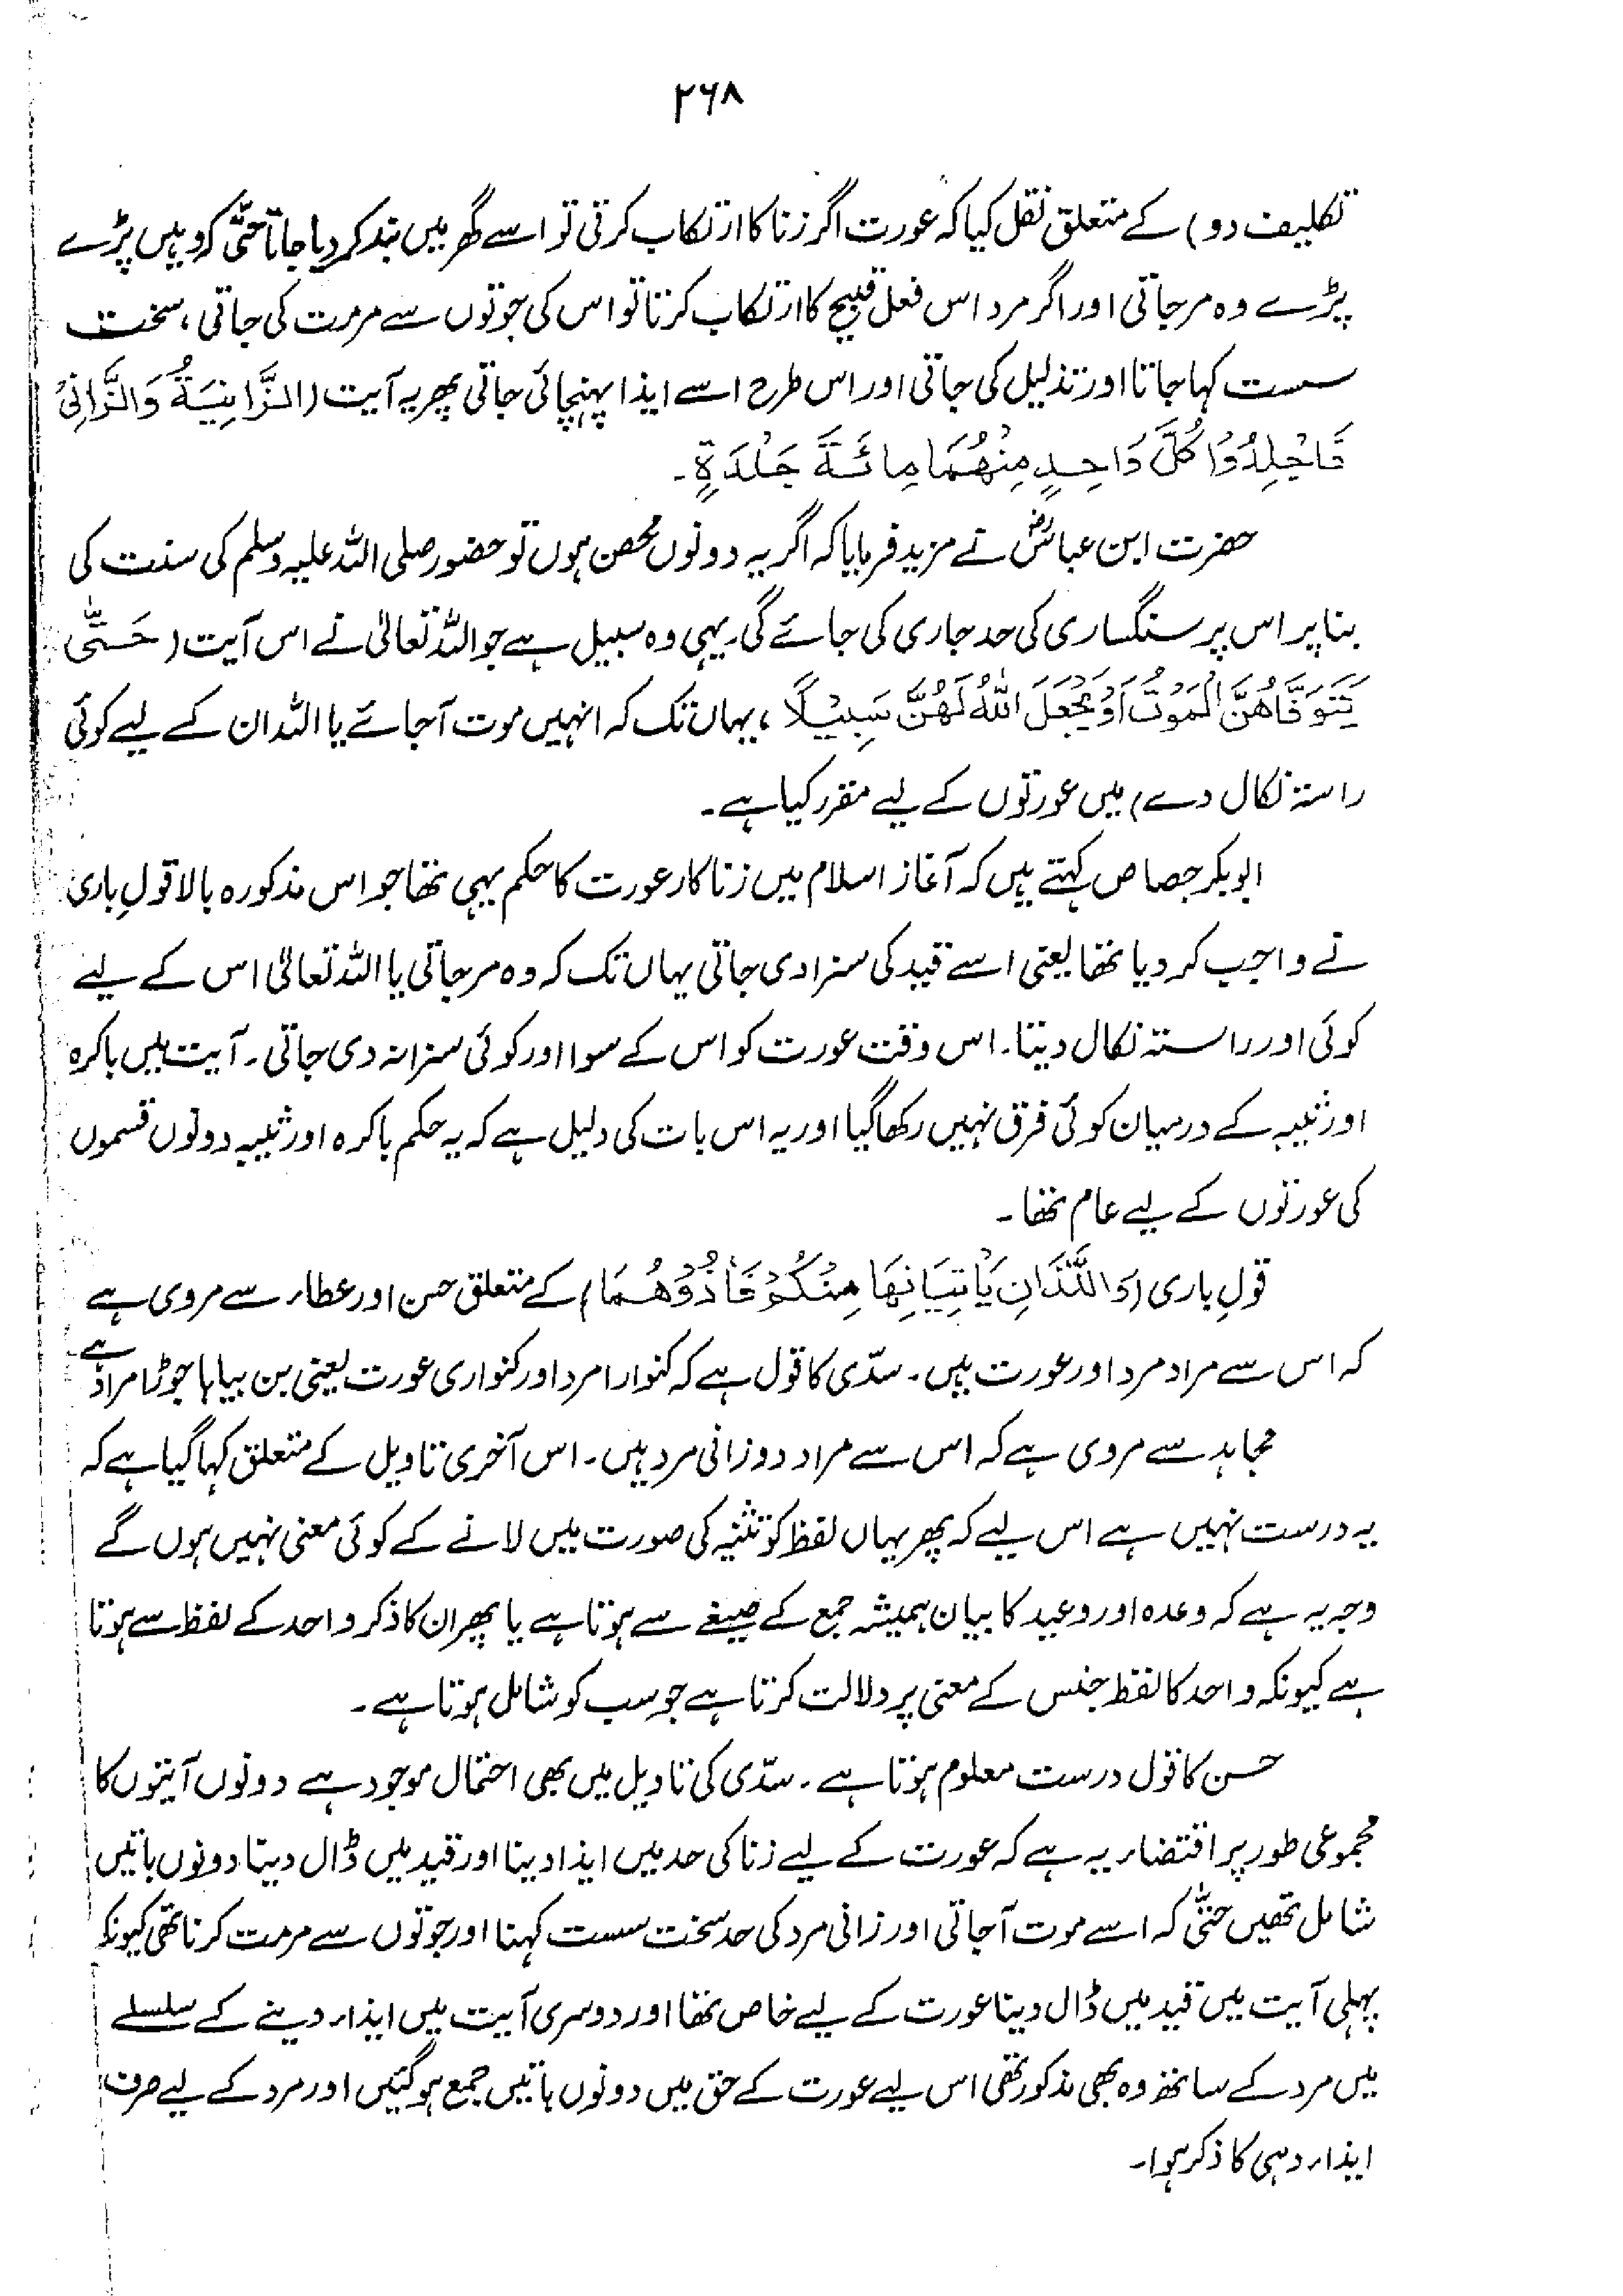 ۲۶۸
تکلیف دو) کے متعلق نقل کیا کہ عورت اگر زنا کا ارتکاب کرتی تو اسے گھر میں بند کر دیا جاتا حتّٰی کہ وہیں پڑے
پڑے وہ مرجاتی اور اگر مرد اس فعل قبیح کا ارتکاب کرتا تو اس کی جوتوں سے مرمت کی جاتی، سخت
سست کہا جاتا اور تذلیل کی جاتی اور اس طرح اسے ایذا پہنچائی جاتی پھر یہ آیت (اَلزَّانِيَةُ وَالزَّانِیْ
فَاجْلِدُوْا كُلَّ وَاحِدٍ مِنْهُمَا مِائَةَ جَلْدَةٍ۔
حضرت ابن عباسؓ نے مزید فرمایا کہ اگر یہ دونوں محصن ہوں تو حضور صلی اللہ علیہ وسلم کی سنت کی
بنا پر اس پر سنگساری کی حد جاری کی جائے گی۔ یہی وہ سبیل ہے جو اللہ تعالیٰ نے اس آیت (حَتّٰی
يَتَوَفَّاهُنَّ الْمَوْتُ اَوْ يَجْعَلَ اللّٰهُ لَهُنَّ سَبِيْلًا، یہاں تک کہ انہیں موت آجائے یا اللہ ان کے لیے کوئی
راستہ نکال دے) میں عورتوں کے لیے مقرر کیا ہے۔
ابوبکر جصاص کہتے ہیں کہ آغاز اسلام میں زنا کار عورت کا حکم یہی تھا جو اس مذکورہ بالا قولِ باری
نے واجب کر دیا تھا یعنی اسے قید کی سزا دی جاتی یہاں تک کہ وہ مرجاتی یا اللہ تعالیٰ اس کے لیے
کوئی اور راستہ نکال دیتا۔ اس وقت عورت کو اس کے سوا اور کوئی سزا نہ دی جاتی۔ آیت میں باکرہ
اور ثیبہ کے درمیان کوئی فرق نہیں رکھا گیا اور یہ اس بات کی دلیل ہے کہ یہ حکم باکرہ اور ثیبہ دونوں قسموں
کی عورتوں کے لیے عام تھا۔
قولِ باری (وَاللَّذَانِ يَأْتِيَانِهَا مِنْكُمْ فَآذُوْهُمَا) کے متعلق حسن اور عطاء سے مروی ہے
کہ اس سے مراد مرد اور عورت ہیں۔ سدّی کا قول ہے کہ کنوارا مرد اور کنواری عورت یعنی بن بیاہا جوڑا مراد ہے
مجاہد سے مروی ہے کہ اس سے مراد دو زانی مرد ہیں۔ اس آخری تاویل کے متعلق کہا گیا ہے کہ
یہ درست نہیں ہے اس لیے کہ پھر یہاں لفظ کو تثنیہ کی صورت میں لانے کے کوئی معنی نہیں ہوں گے
وجہ یہ ہے کہ وعدہ اور وعید کا بیان ہمیشہ جمع کے صیغے سے ہوتا ہے یا پھر ان کا ذکر واحد کے لفظ سے ہوتا
ہے کیونکہ واحد کا لفظ جنس کے معنی پر دلالت کرتا ہے جو سب کو شامل ہوتا ہے۔
حسن کا قول درست معلوم ہوتا ہے۔ سدّی کی تاویل میں بھی احتمال موجود ہے دونوں آیتوں کا
مجموعی طور پر اقتضاء یہ ہے کہ عورت کے لیے زنا کی حد میں ایذا دینا اور قید میں ڈال دینا دونوں باتیں
شامل تھیں حتّٰی کہ اسے موت آجاتی اور زانی مرد کی حد سخت سست کہنا اور جوتوں سے مرمت کرنا تھی کیونکہ
پہلی آیت میں قید میں ڈال دینا عورت کے لیے خاص تھا اور دوسری آیت میں ایذاء دینے کے سلسلے
میں مرد کے ساتھ وہ بھی مذکور تھی اس لیے عورت کے حق میں دونوں باتیں جمع ہوگئیں اور مرد کے لیے صرف
ایذاء دہی کا ذکر ہوا۔